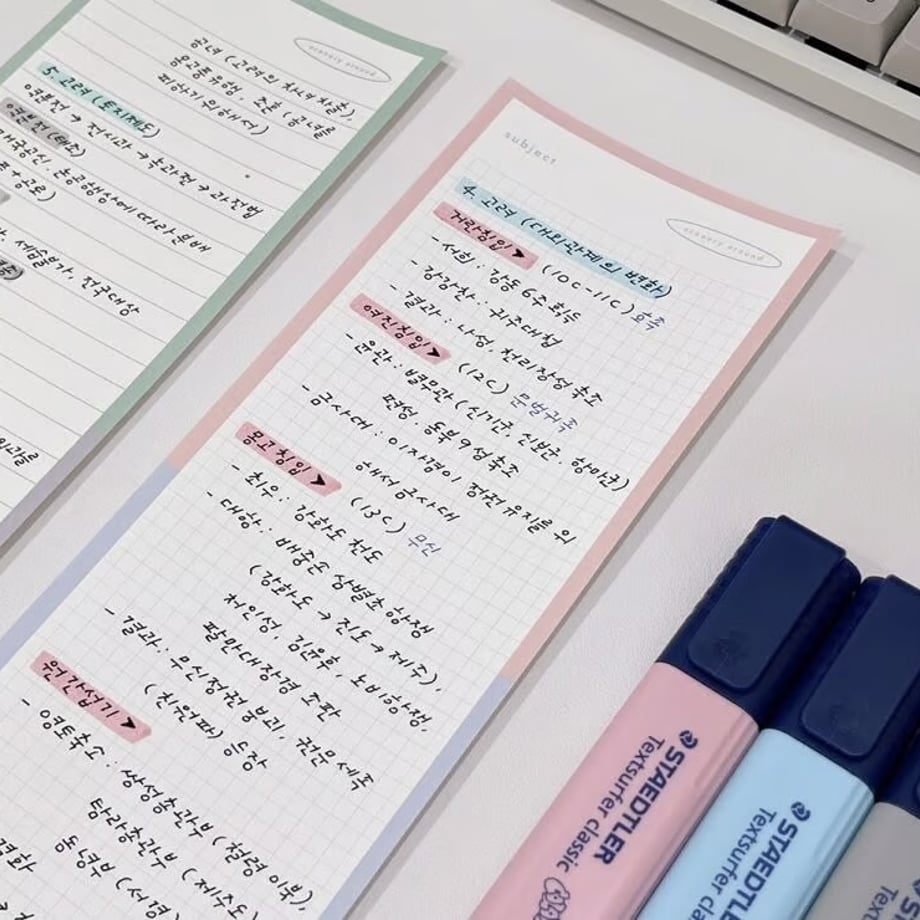 scenery around
원나라 (고려의 처녀 차출),
몽고풍 유행, 조혼 (공녀를
피하기 위해서)
5. 고려 (토지제도)
역분전 → 전시과 → 녹과전 → 과전법
역분전 (태조)
개국공신, 논공행상에 따라 분배
전국대상
subject
scenery around
4. 고려 (대외관계의 변화)
거란침입 ➤ (10C-11C) 호족
- 서희 : 강동 6주획득
- 강감찬 : 귀주대첩
- 결과 : 나성, 천리장성 축조
여진침입 ➤ (12C) 문벌귀족
- 윤관 : 별무관 (신기군, 신보군, 항마군)
편성. 동북 9성 축조
- 금사대 : 이자겸이 정권유지를 위
해서 금사대
몽고침입 ➤ (13C) 무신
- 최우 : 강화도 천도
- 대항 : 배중손 삼별초항쟁
(강화도 → 진도 → 제주),
처인성, 김윤후, 노비항쟁,
팔만대장경 조판
- 결과 : 무신정권 붕괴, 권문세족
(친원파) 등장
원간섭기 ➤
- 영토축소 : 쌍성총관부 (철령 이북),
탐라총관부 (제주도)
동녕부 (서경)
STAEDTLER
Textsurfer classic
STAEDTLER
Textsurfer classic